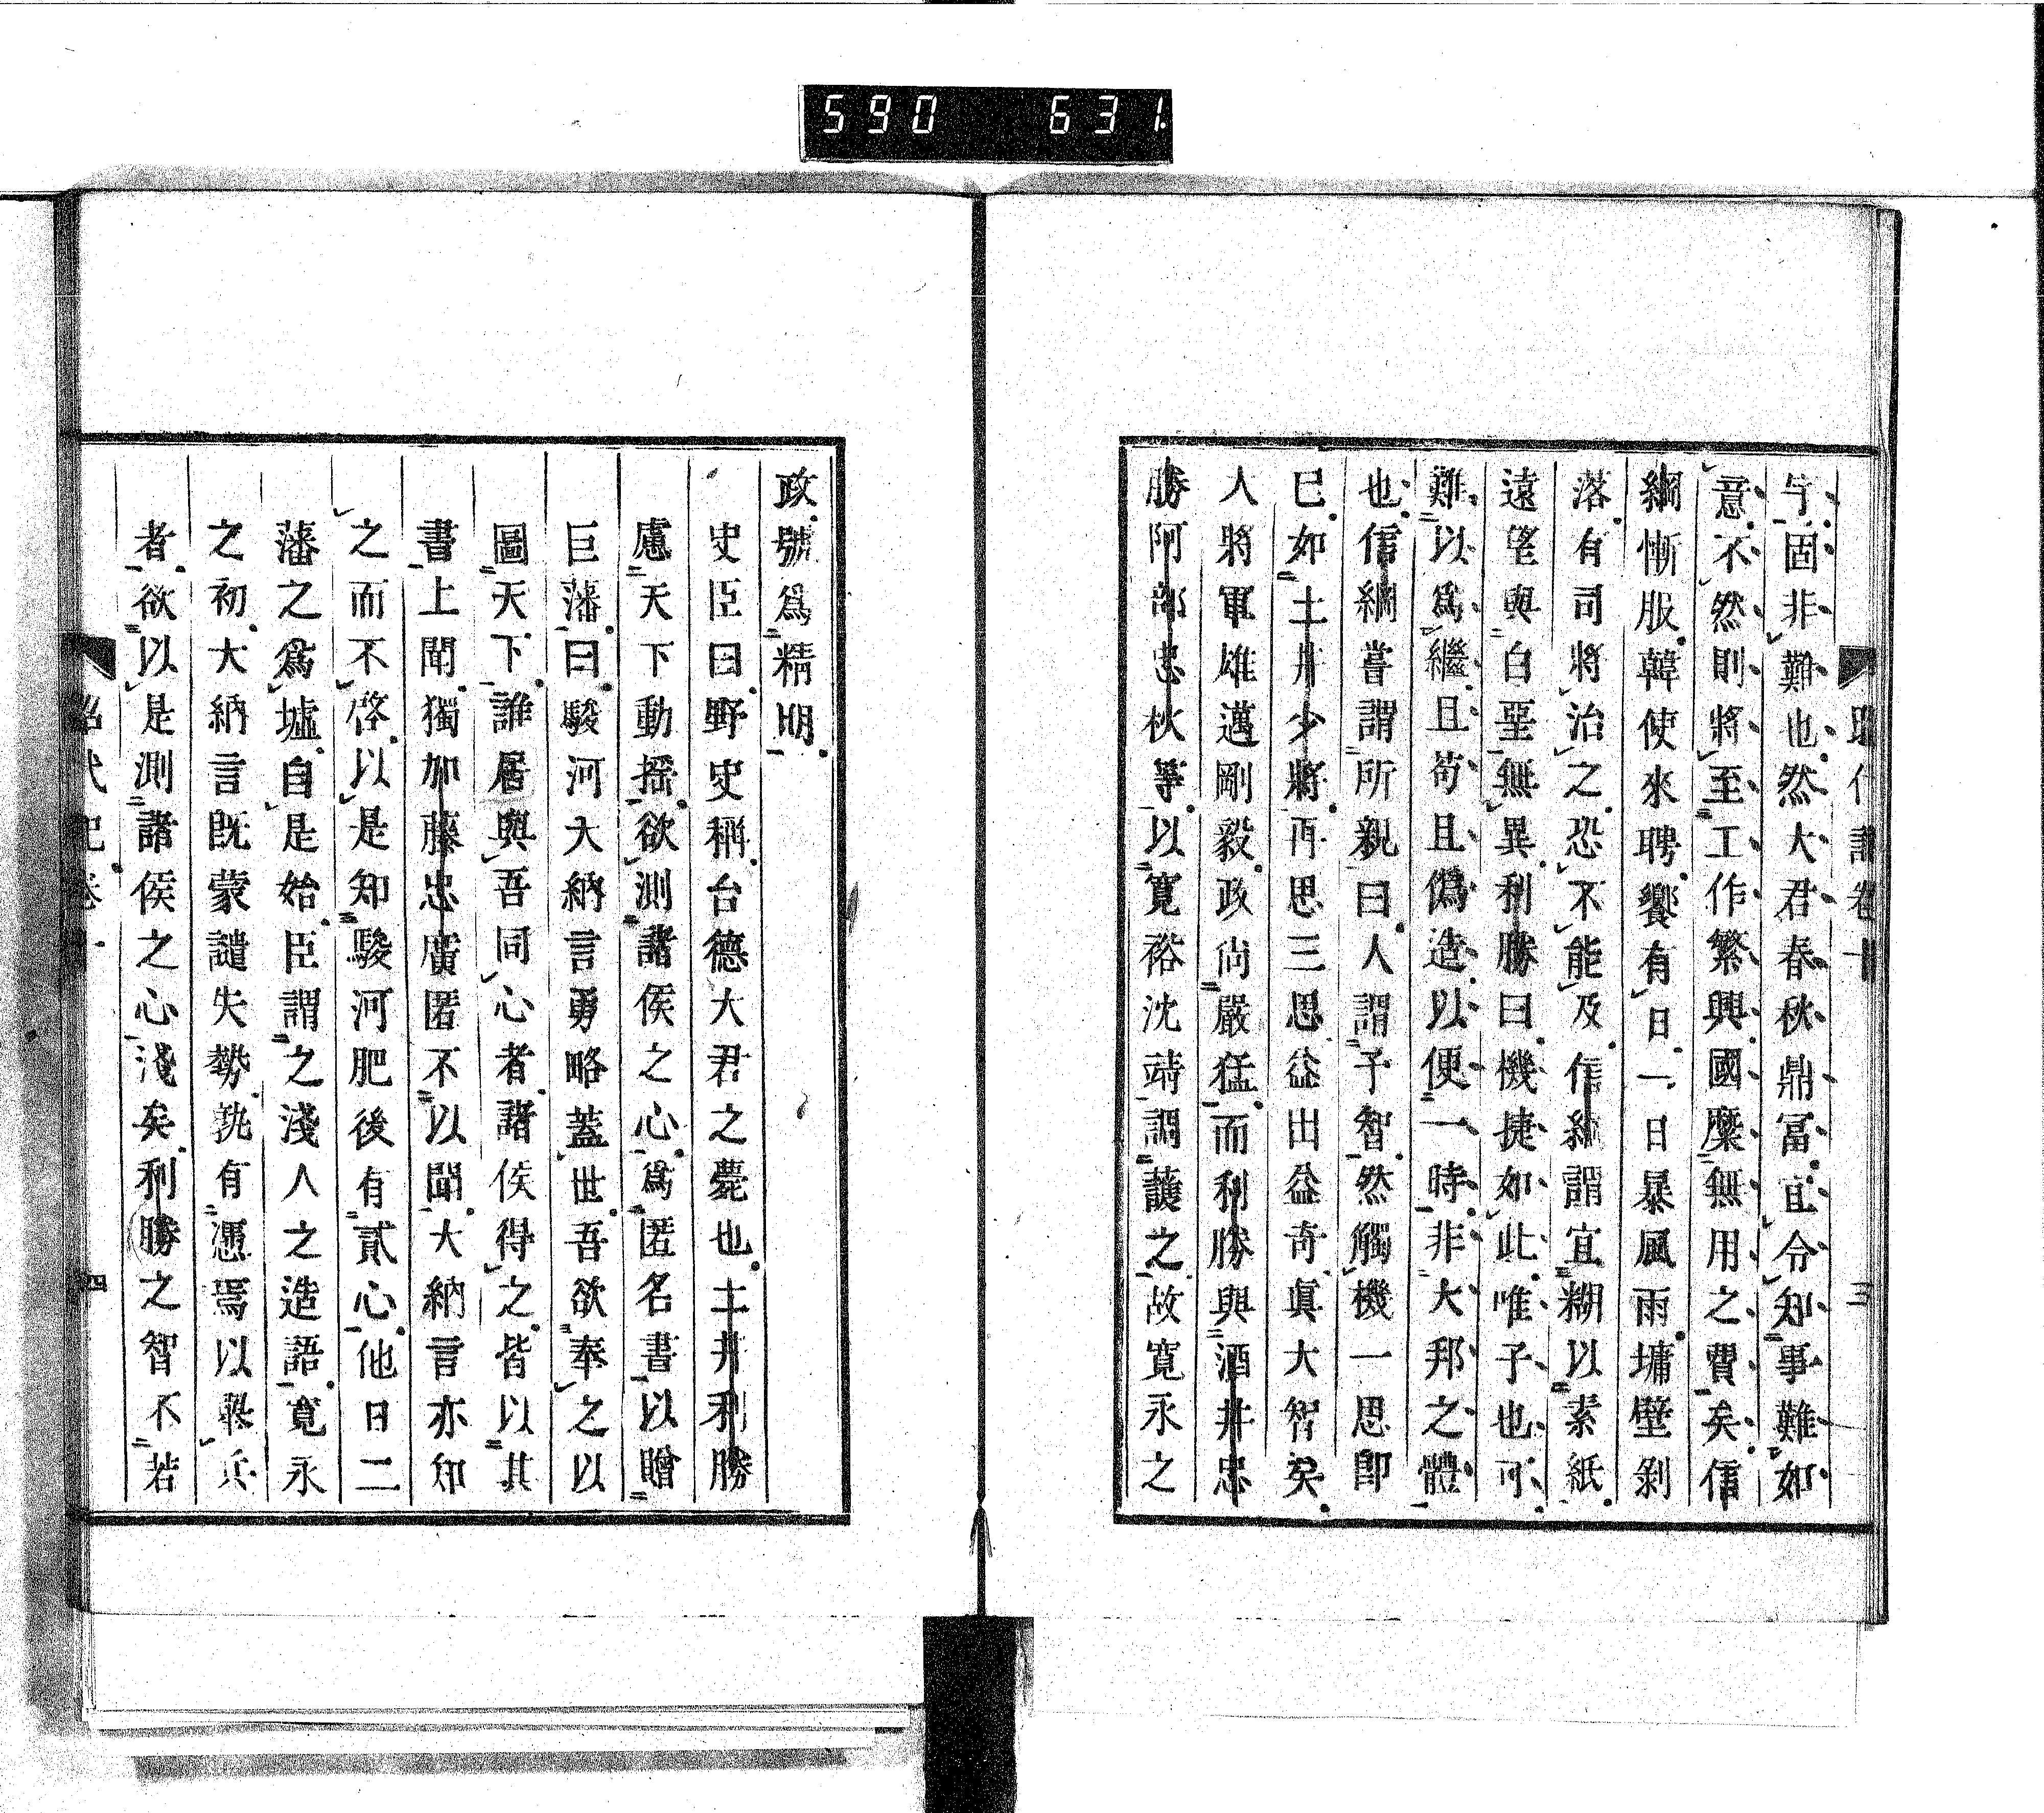 590 631
兮固非難也然大君春秋鼎富宜令知事難如
意不然則將至工作繁興國糜無用之費矣信
綱慚服韓使來聘饗有日一日暴風雨墉壁剝
落有司將治之恐不能及信綱謂宜糊以素紙
遠望與白堊無異利勝曰機捷如此唯子也可
難以爲繼且苟且僞造以便一時非大邦之體
也信綱嘗謂所親曰人謂予智然觸機一思即
已如土井少將再思三思益出益奇眞大智矣
人將軍雄邁剛毅政尚嚴猛而利勝與酒井忠
勝阿部忠秋等以寬裕沈靖調護之故寬永之
三
政號爲精明
史臣曰野史稱台德大君之薨也土井利勝
慮天下動搖欲測諸侯之心爲匿名書以贈
巨藩曰駿河大納言勇略蓋世吾欲奉之以
圖天下誰居與吾同心者諸侯得之皆以其
書上聞獨加藤忠廣匿不以聞大納言亦知
之而不啓以是知駿河肥後有貳心他日二
藩之爲墟自是始臣謂之淺人之造語寬永
之初大納言既蒙譴失勢孰有憑焉以舉兵
者欲以是測諸侯之心淺矣利勝之智不若
四